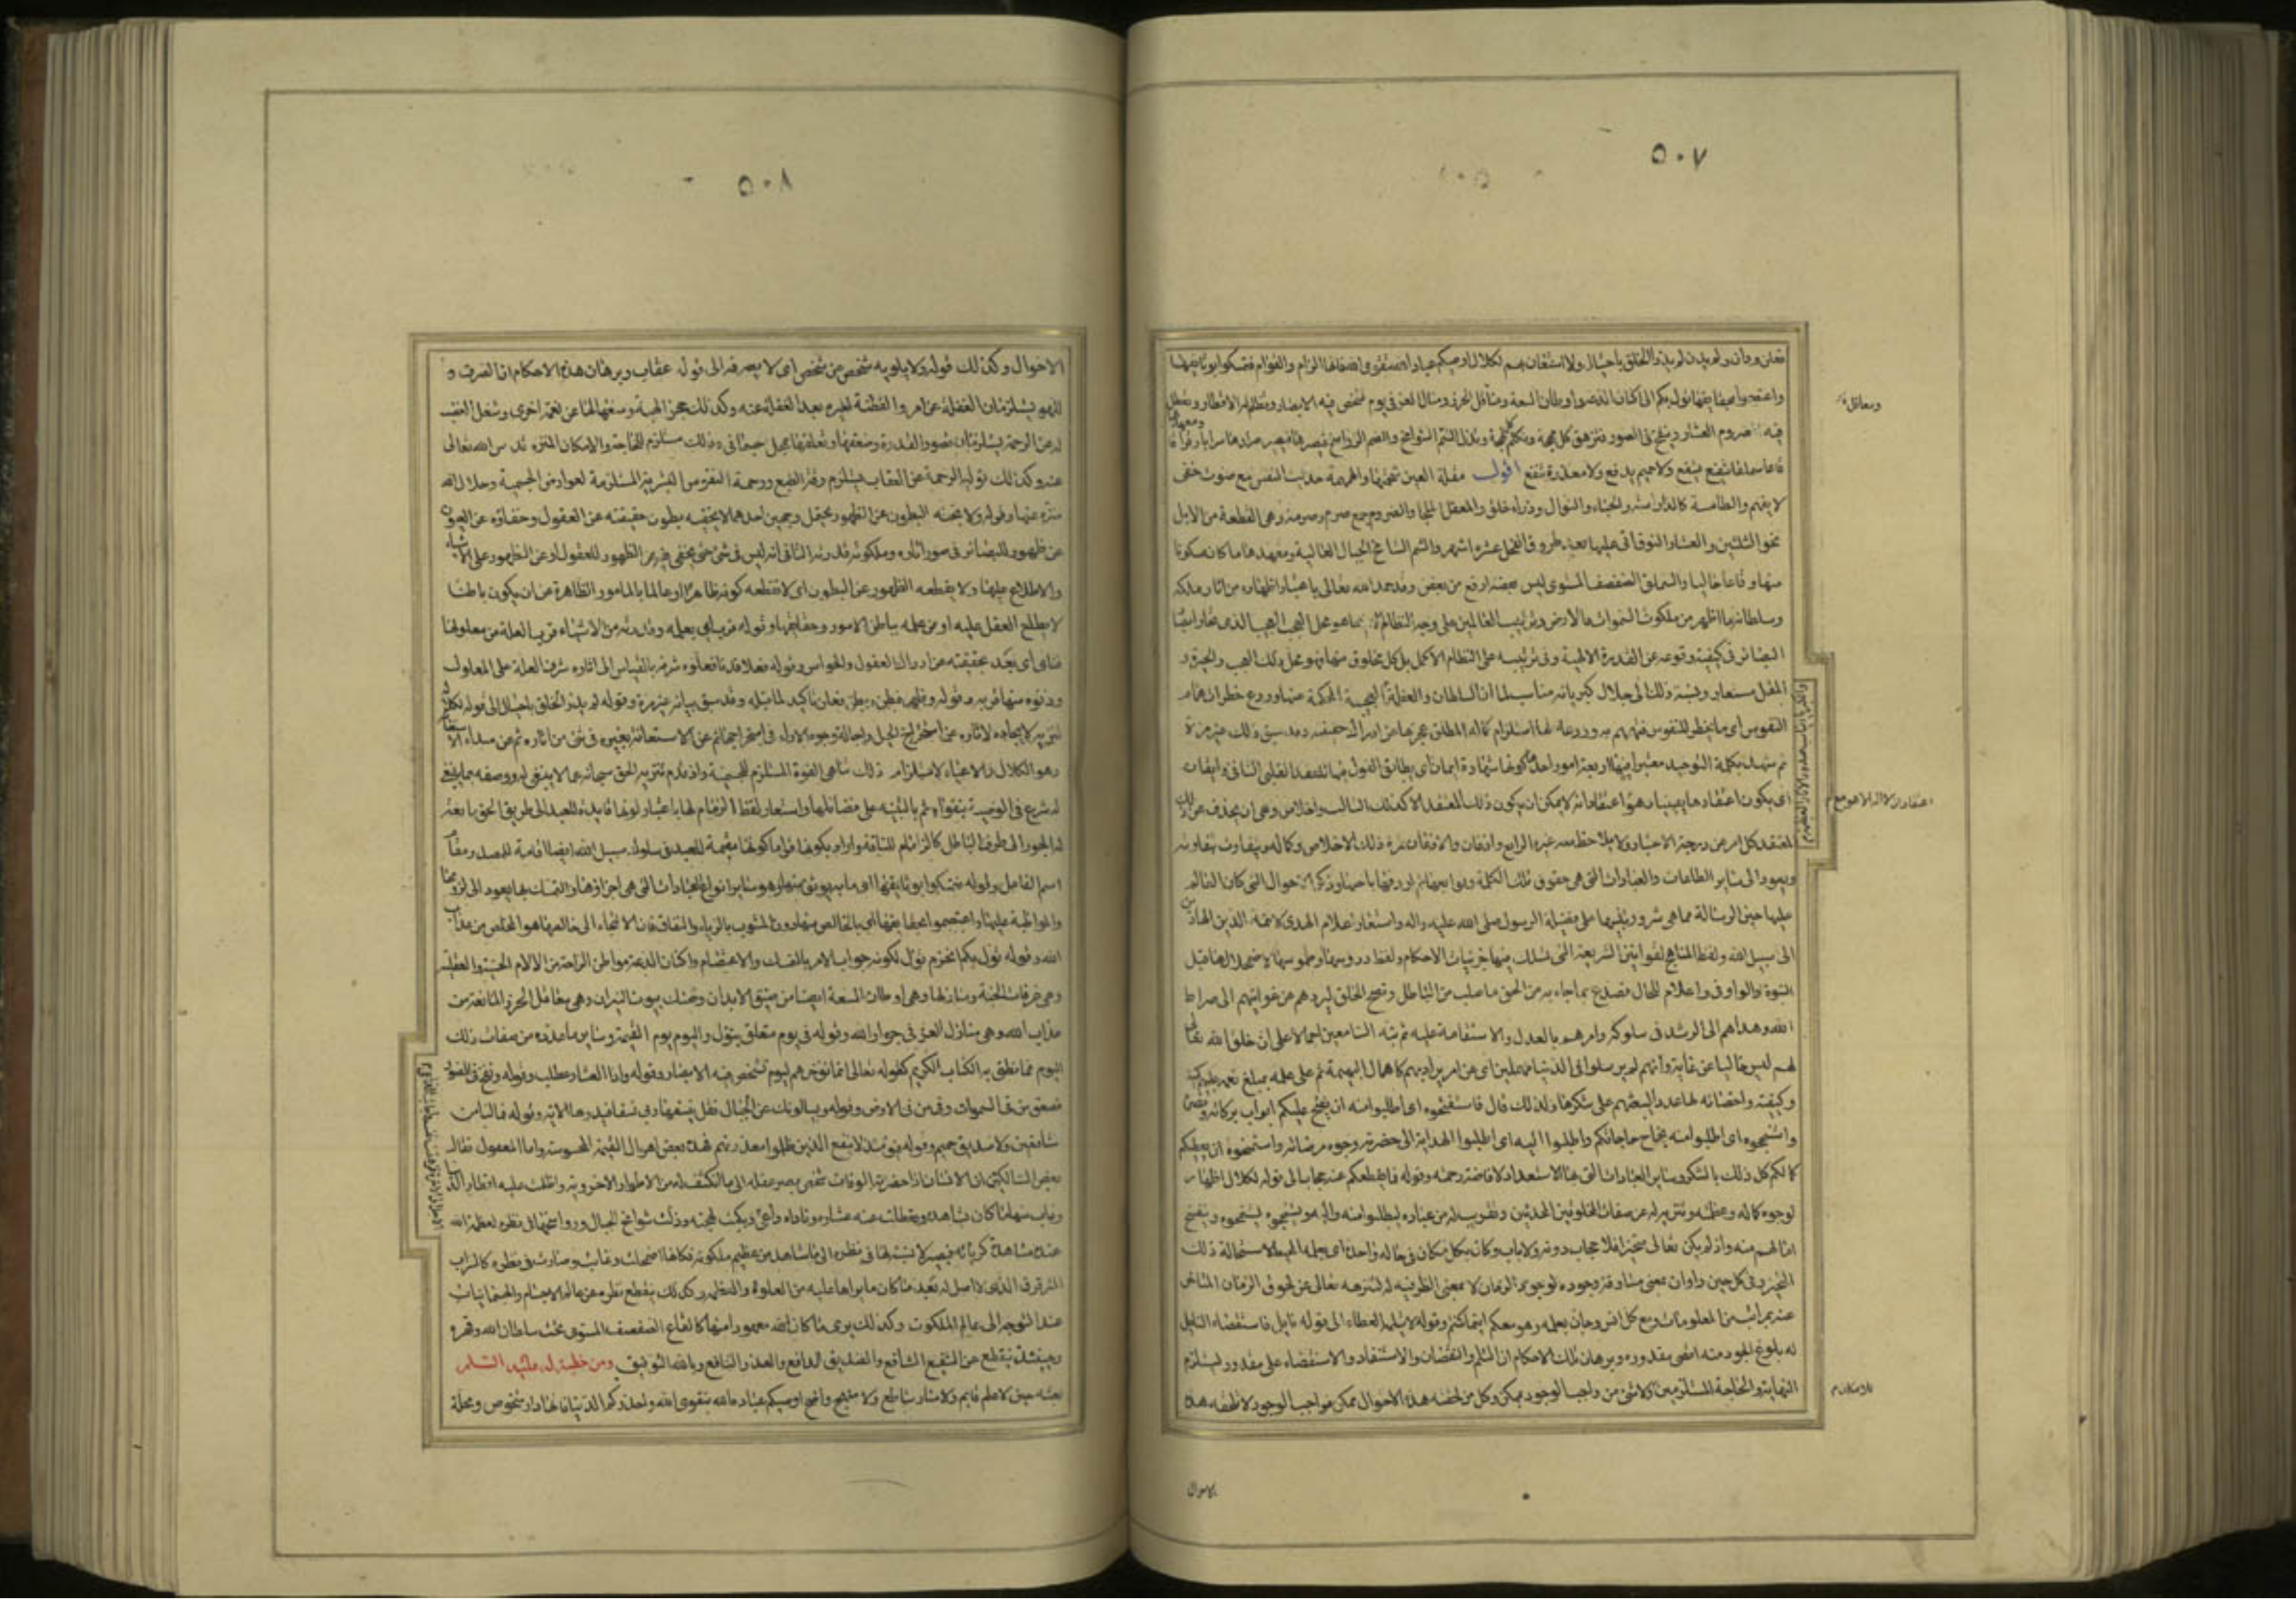 ٥٠٧
فعلن ودان ولم يدن لم يذرأ الخلق باحتيال ولا استعان بهم لكلال اوصيكم عباد الله بتقوى الله فانها الزمام والقوام فتمسكوا بوثايقها
واعتصموا بحقايقها تؤل بكم الى اكنان الدعة واوطان السعة ومعاقل الحرز ومنازل العز فى يوم تشخص فيه الابصار وتظلم له الاقطار وتعطل
فيه صروم العشار وينفخ فى الصور فتزهق كل مهجة وتبكم كل لهجة وتذل الشم الشوامخ والصم الرواسخ فيصير صلدها سرابا رقراقا
ومعهدها
قاعا سملقا فلا شفيع يشفع ولا حميم يدفع ولا معذرة تنفع اقول مقلة العين شحمتها والهمهمة حديث النفس مع صوت خفى
لا يفهم والطامسة كالدارسة والحباء النوال وذرأه خلق والمعقل الملجأ والصروم جمع صرم وصرمة وهى القطعة من الابل
نحو الثلثين والعشار النوق اتى عليها بعد طروق الفحل عشرة اشهر والشم الشامخ الجبال العالية ومعهدها ما كان مسكونا
منها وقاعا خاليا والسملق الصفصف المستوى ليس بعضه ارفع من بعض وقد حمد الله تعالى باعتبار اظهاره من اثار ملكه
وسلطانه ما اظهر من ملكوت السموات والارض وترتيب العالمين على وجه النظام
البصائر فى كيفية وقوعه عن القدرة الالهية وفى ترتيبه على النظام الاكمل بل كل مخلوق منها فهو محل ذلك العجب والحيرة و
المقل مستعار ونسبة ذلك الى جلال كبريائه مناسب لما ان السلطان والعظمة
النفوس اى ما يخطر للنفوس فتهمهم به وردعه لها استلزام كماله المطلق عجزها عن ادراك حقيقته وقد سبق ذلك غير مرة
ثم شهد بكلمة التوحيد معتبرا فيها اربعة امور احدها كونها شهادة ايمان اى يطابق القول فيها للعقد القلبى الثانى وايقان
اى يكون اعتقادها يقينيا وهو اعتقاد انه لا يمكن ان يكون ذلك المعتقد الا كذلك الثالث واخلاص وهى ان يحذف عن ذلك
المعتقد كل امر عن درجة الاعتبار ولا يلاحظ معه غيره الرابع واذعان والاذعان ثمرة ذلك الاخلاص وكماله ويتفاوت بتفاوته
ويعود الى ساير الطاعات والعبادات التى هى حقوق تلك الكلمة وتوابعها ثم اردفها باختها وذكر الاحوال التى كان العالم
عليها حين الرسالة مما هى شرور ليتبها على فضيلة الرسول صلى الله عليه واله واستعار اعلام الهدى لائمة الدين الهادين
الى سبيل الله ولفظ المناهج لقوانين الشريعة التى تسلك فيها جزئيات الاحكام ولفظ دروسها وطموسها لاضمحلالها قبل
النبوة والواو فى واعلام للحال فصدع بما جاء به من الحق ما صلب من الباطل ونصح الخلق ليردهم عن غوايتهم الى صراط
الله وهداهم الى الرشد فى سلوكه وامرهم بالعدل والاستقامة عليه ثم نبه السامعين اجمالا على ان خلق الله تعالى
لهم ليس خاليا عن غاية وانهم لم يرسلوا فى الدنيا مهملين اى عن امر يراد بهم كاهمال البهيمة ثم على علمه بمبلغ نعمه عليهم كمية
وكيفية واحصائه لها عددا ليبعثهم على شكرها ولذلك قال فاستفتحوه اى اطلبوا منه ان يفتح عليكم ابواب بركاته ونصره
واستنجحوه اى اطلبوا منه نجاح حاجاتكم واطلبوا اليه اى اطلبوا الهداية الى حضرته ووجوه مرضاته واستمنحوه ان يعطيكم
كمالكم كل ذلك بالشكر وساير العبادات التى بها الاستعداد لافاضة رحمته وقوله فما قطعكم عنه حجاب الى قوله لكلال اظهار
لوجوه كماله وعظمته وتنزيه له عن صفات المخلوقين المحدثين وتقريب له من عباده ليطلبوا منه والهموا
افعالهم منه واذ لم يكن تعالى متحيزا فلا حجاب دونه ولا باب وكان بكل مكان فى حالة واحدة اى بعلمه المحيط لاستحالة ذلك
التحيز وفى كل حين واوان بمعنى مساوقة وجوده لوجود الزمان لا بمعنى الظرفية له لتنزهه تعالى عن لحوق الزمان المتأخر
عنه بمراتب من المعلومات ومع كل انس وجان بعلمه وهو معكم اينما كنتم وقوله لا يثلمه العطاء الى قوله نايل فاستقصاء النايل
له بلوغ الجود منه اقصى مقدوره وبرهان تلك الاحكام ان الثلم والنقصان والاستنفاد والاستقصاء على مقدور ليستلزم
النهاية والحاجة المستلزمين للامكان ولا شىء من واجب الوجود بممكن وكل من لحقته هذه الاحوال ممكن فواجب الوجود لا تلحقه هذه
ومعاقل
اعتقاد ان لا اله الا هو مع
الاحوال
٥٠٨
الاحوال وكذلك قوله ولا يلويه شخص عن شخص اى لا يصرفه الى قوله عقاب وبرهان هذه الاحكام ان الصرف و
اللهو يستلزمان الغفلة عن امر والفطنة لغيره بعد الغفلة عنه وكذلك حجز الهبة ومنعها لها عن سلب نعمة اخرى وشغل الغضب
له عن الرحمة يستلزمان قصور القدرة وضعفها وتعلقها بمحل جسمانى وذلك مستلزم للحاجة والامكان المنزه قدس الله تعالى
عنه وكذلك توليه الرحمة عن العقاب يستلزم رقة الطبع ورحمة النفوس البشرية المستلزمة لعوارض الجسمية وجلال الله
منزه عنها وقوله ولا يجنه البطون عن الظهور يحتمل وجهين احدهما لا يخفيه بطون حقيقته عن العقول وخفاؤه عن العيون
عن ظهوره للبصائر فى صور اثاره وملكوت قدرته الثانى انه ليس فى شىء حتى يخفى فيه عن الظهور للعقول او عن الظهور على الاشياء
والاطلاع عليها ولا يقطعه الظهور عن البطون اى لا يقطعه كونه ظاهرا او عالما بالامور الظاهرة عن ان يكون باطنا
لا يطلع العقل عليه او عن علمه بباطن الامور وحقايقها وقوله قرب اى بعلمه وقدرته من الاشياء قرب العلة من معلولها
فنأى اى بعد بحقيقته عن ادراك العقول والحواس وقوله فعلا فدنا فعلوه شرفه بالقياس الى اثاره شرف العلة على المعلول
ودنوه منها قربه وقوله وظهر فبطن وبطن فعلن تأكيد لما قبله وقد سبق بيانه غير مرة وقوله لم يذرأ الخلق باحتيال الى قوله لكلال
تنزيه لايجاده لاثاره عن استخراج الحيل واجالة وجوه الاراء فى استخراجها ثم عن الاستعانة بغيره فى شىء من اثاره ثم عن مبداء الاستعانة
وهو الكلال والاعياء لاستلزام ذلك تناهى القوة المستلزم للجسمية واذ قدم تنزيه الحق سبحانه عما لا ينبغى له ووصفه بما ينبغى
له شرع فى الوصية بتقواه ثم بالتنبيه على فضائلها واستعار لفظ الزمام لها باعتبار كونها قايدة للعبد الى طريق الحق مانعة
له الجور الى طرف الباطل كالزمام للناقة واراد بكونها قواما كونها مقيمة للعبد فى سلوك سبيل الله
اسم الفاعل وقوله فتمسكوا بوثايقها اى ما به يوثق منها وهو ساير انواع العبادات التى هى اجزاؤها والتمسك بها يعود الى لزومها
والمواظبة عليها واعتصموا بحقايقها اى بالخالص منها دون المشوب بالرياء والنفاق فان الالتجاء الى خالصها هو المخلص من عذاب
الله وقوله تؤل بكم انجزم تؤل لكونه جواب الامر بالتمسك والاعتصام واكنان الدعة مواطن الراحة من الالام الحسية والعقلية
وهى غرفات الجنة ومنازلها وهى اوطان السعة ايضا من ضيق الابدان وضنك بيوت النيران وهى معاقل الحرز المانعة من
عذاب الله وهى منازل العز فى جوار الله وقوله فى يوم متعلق بتؤل واليوم يوم القيمة وساير ما عدده من صفات ذلك
اليوم مما نطق به الكتاب الكريم كقوله تعالى انما نؤخرهم ليوم تشخص فيه الابصار وقوله واذا العشار عطلت وقوله ونفخ فى الصور
فصعق من فى السموات ومن فى الارض وقوله ويسألونك عن الجبال فقل ينسفها ربى نسفا فيذرها الاية وقوله فما لنا من
شافعين ولا صديق حميم وقوله فيومئذ لا ينفع الذين ظلموا معذرتهم فهذه بعض اهوال القيمة المحسوسة واما المعقول فقال
بعض السالكين ان الانسان اذا حضرته الوفات شخص بصر عقله الى ما انكشف له من الاطوار الاخروية واظلمت عليه اقطار الدنيا
وغاب منها ما كان يشاهده وتعطلت عنه عشاره وناداه داعى ربه فبكمت لهجته وذلت شوامخ الجبال ورواسخها فى نظره لعظمة الله
عند مشاهدة كبريائه فيصير لا نسبة لها فى نظره الى ما شاهد من عظيم ملكوته فكانها اضمحلت وغابت وصارت فى نظره كالسراب
المترقرق الذى لا اصل له بعد ما كان ما يراها عليه من العلو والعظمة وكذلك ينقطع نظره عن عالم الاجسام والجسمانيات
عند التوجه الى عالم الملكوت وكذلك يرى ما كان منه معهودا منها كالقاع الصفصف المستوى تحت سلطان الله وقهره
وحينئذ ينقطع عن الشفيع الشافع والصديق الدافع والعذر النافع وبالله التوفيق ومن خطبة له عليه السلام
بعثه حين لا علم قايم ولا منار ساطع ولا منهج واضح اوصيكم عباد الله بتقوى الله واحذركم الدنيا فانها دار شخوص ومحلة